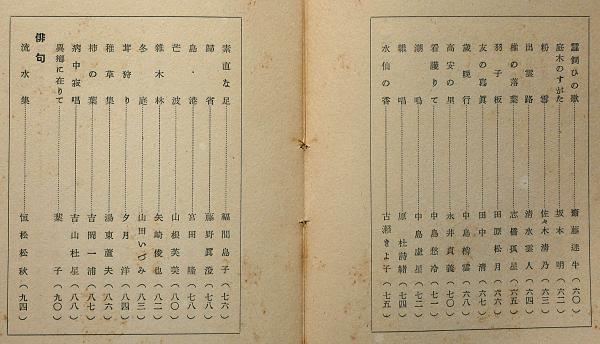 靈飼ひの歌……齋藤達牛（六〇）
庭木のすがた……坂本明（六二）
粉雪……佐々木清乃（六三）
出雲路……清水雲人（六四）
椎の落葉……志橋孤星（六五）
羽子板……田原松月（六六）
友の寫眞……田中清（六七）
歲晩行……中島勝雲（六八）
高安の里……永井貞義（七〇）
看護りて……中島愁冷（七二）
潮鳴……中島虛星（七二）
雜唱……原杜詩緒（七四）
水仙の香……古瀨きよ子（七五）
素直な足……福間島子（七六）
歸省……藤野眞澄（七八）
島港……宮田隆（七八）
芒波……山根芙美（八〇）
雜木林……矢崎俊也（八二）
冬庭……山田いづみ（八三）
茸狩り……夕月洋（八四）
稚草集……湯東蘆夫（八六）
柿の葉……吉岡一浦（八七）
病中寂唱……吉山杜星（八八）
異鄕に在りて……葉子（九〇）
俳句
流水集……恒松松秋（九四）